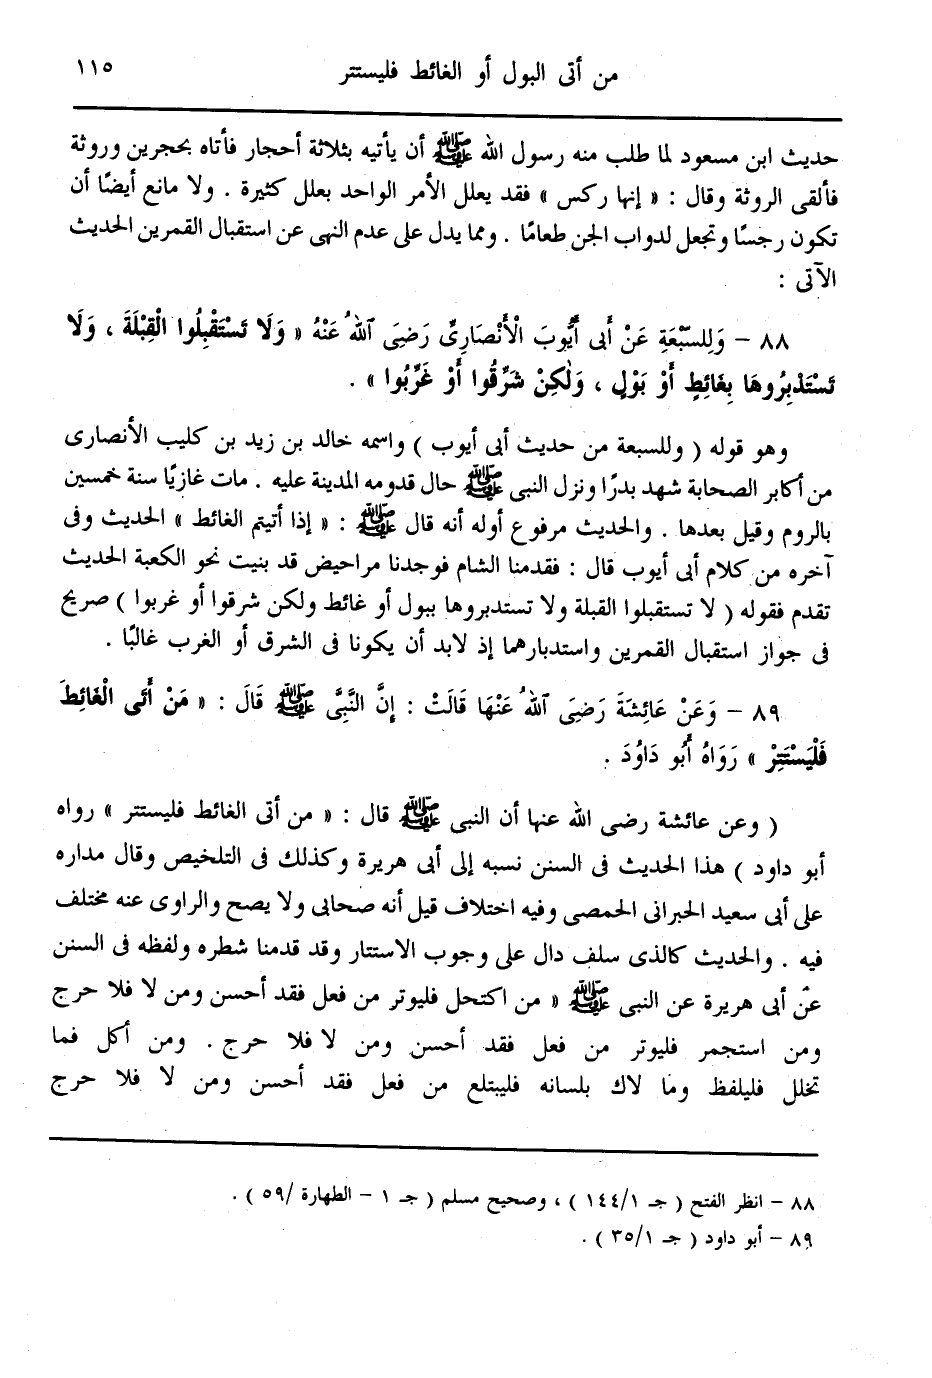 من أتى البول أو الغائط فليستتر ١١٥
حديث ابن مسعود لما طلب منه رسول الله ﷺ أن يأتيه بثلاثة أحجار فأتاه بحجرين وروثة
فألقى الروثة وقال : « إنها ركس » فقد يعلل الأمر الواحد بعلل كثيرة . ولا مانع أيضًا أن
تكون رجسًا وتجعل لدواب الجن طعامًا . ومما يدل على عدم النهى عن استقبال القمرين الحديث
الآتى :
٨٨ – وَلِلسَّبْعَةِ عَنْ أَبِى أَيُّوبَ الْأَنْصَارِىِّ رَضِىَ ٱللهُ عَنْهُ « وَلَا تَسْتَقْبِلُوا الْقِبْلَةَ ، وَلَا
تَسْتَدْبِرُوهَا بِغَائِطٍ أَوْ بَوْلٍ ، وَلٰكِنْ شَرِّقُوا أَوْ غَرِّبُوا » .
وهو قوله ( وللسبعة من حديث أبى أيوب ) واسمه خالد بن زيد بن كليب الأنصارى
من أكابر الصحابة شهد بدرًا ونزل النبى ﷺ حال قدومه المدينة عليه . مات غازيًا سنة خمسين
بالروم وقيل بعدها . والحديث مرفوع أوله أنه قال ﷺ : « إذا أتيتم الغائط » الحديث وفى
آخره من كلام أبى أيوب قال : فقدمنا الشام فوجدنا مراحيض قد بنيت نحو الكعبة الحديث
تقدم فقوله ( لا تستقبلوا القبلة ولا تستدبروها ببول أو غائط ولكن شرقوا أو غربوا ) صريح
فى جواز استقبال القمرين واستدبارهما إذ لابد أن يكونا فى الشرق أو الغرب غالبًا .
٨٩ – وَعَنْ عَائِشَةَ رَضِىَ ٱللهُ عَنْهَا قَالَتْ : إِنَّ النَّبِىَّ ﷺ قَالَ : « مَنْ أَتَى الْغَائِطَ
فَلْيَسْتَتِرْ » رَوَاهُ أَبُو دَاوُدَ .
( وعن عائشة رضى الله عنها أن النبى ﷺ قال : « من أتى الغائط فليستتر » رواه
أبو داود ) هذا الحديث فى السنن نسبه إلى أبى هريرة وكذلك فى التلخيص وقال مداره
على أبى سعيد الحبرانى الحمصى وفيه اختلاف قيل أنه صحابى ولا يصح والراوى عنه مختلف
فيه . والحديث كالذى سلف دال على وجوب الاستتار وقد قدمنا شطره ولفظه فى السنن
عن أبى هريرة عن النبى ﷺ « من اكتحل فليوتر من فعل فقد أحسن ومن لا فلا حرج
ومن استجمر فليوتر من فعل فقد أحسن ومن لا فلا حرج . ومن أكل فما
تخلل فليلفظ وما لاك بلسانه فليبتلع من فعل فقد أحسن ومن لا فلا حرج
٨٨ – انظر الفتح ( جـ ١/١٤٤ ) ، وصحيح مسلم ( جـ ١ – الطهارة /٥٩ ) .
٨٩ – أبو داود ( جـ ٣٥/١ ) .